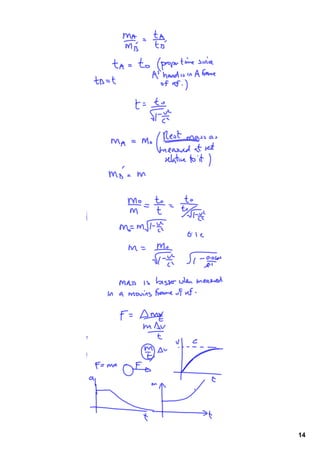 mA / mB' = tA / tB'
tA = t₀ (proper time since
A's hand is in A frame
of ref.)
tB = t
t = t₀ / √(1 - v²/c²)
mA = m₀ (Rest mass as
measured at rest
relative to it)
mB' = m
m₀ / m = t₀ / t = t₀ / (t₀ / √(1 - v²/c²))
m₀ = m √(1 - v²/c²)
0.1c
m = m₀ / √(1 - v²/c²)
mass is bigger when measured
in a moving frame of ref.
F = Δmv / t
m Δv / t
(m/t) Δv
v c
t
F = ma F
a m
t t
14